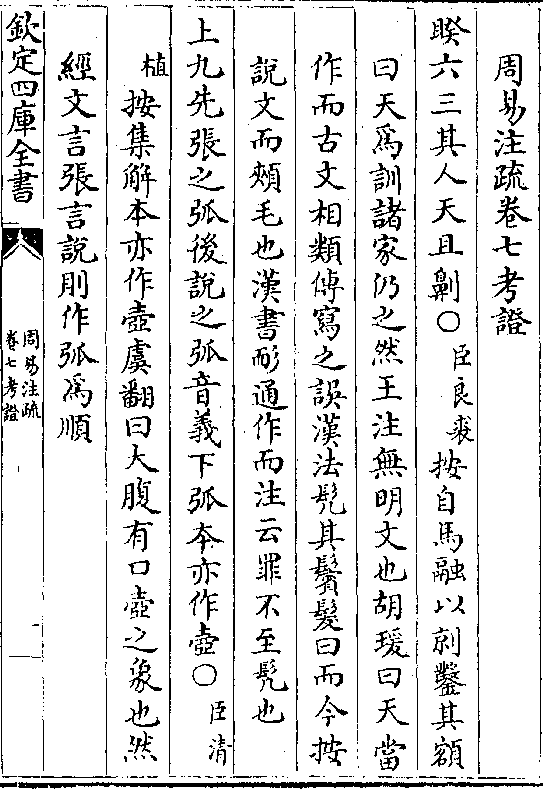 周易注疏卷七考證
睽六三其人天且劓○臣良裘按自馬融以剠鑿其額
曰天為訓諸家仍之然王注無明文也胡瑗曰天當
作而古文相類傳寫之誤漢法髠其鬢髮曰而今按
說文而頰毛也漢書耏通作而注云罪不至髠也
上九先張之弧後說之弧音義下弧夲亦作壺○臣清
植按集解本亦作壺虞翻曰大腹有口壺之象也然
經文言張言說則作弧為順
欽定四庫全書
周易注疏
卷七考證
一